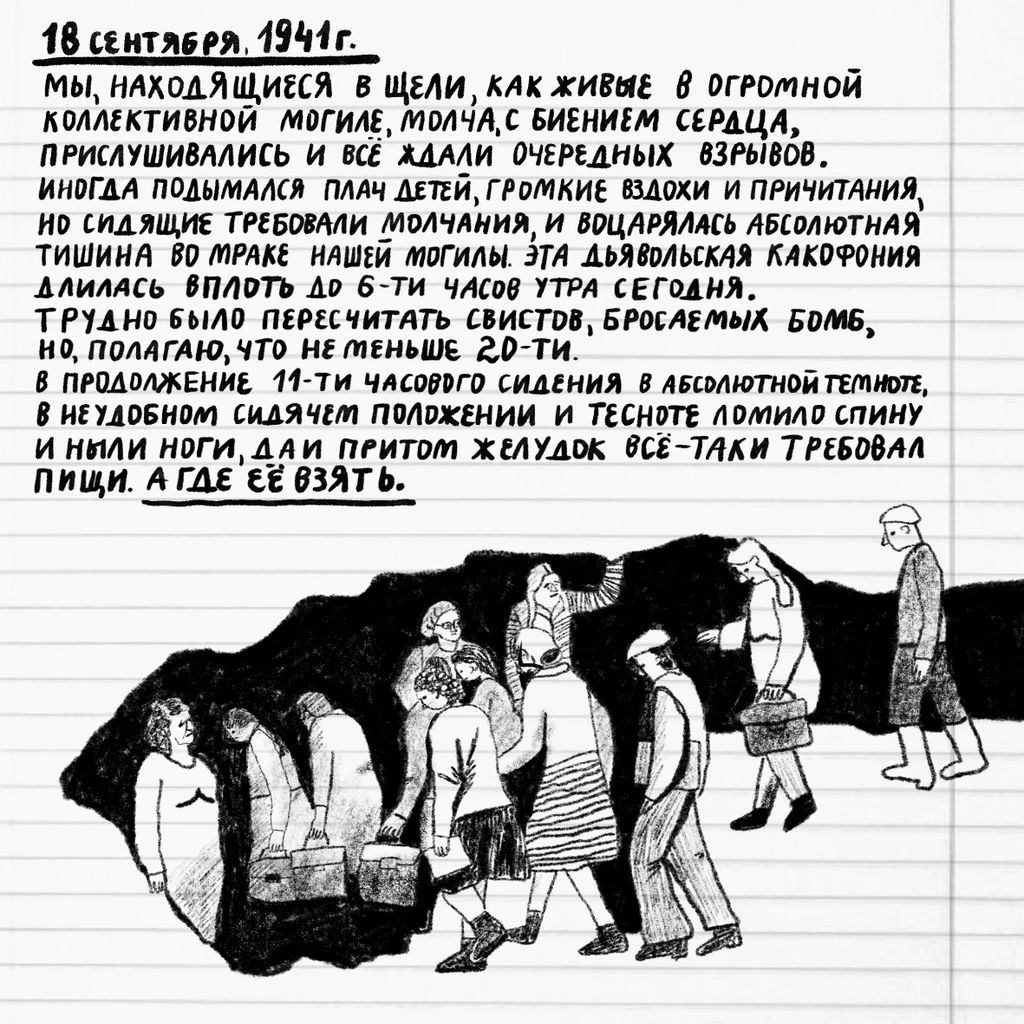 18 СЕНТЯБРЯ, 1941 Г.
МЫ, НАХОДЯЩИЕСЯ В ЩЕЛИ, КАК ЖИВЫЕ В ОГРОМНОЙ
КОЛЛЕКТИВНОЙ МОГИЛЕ, МОЛЧА, С БИЕНИЕМ СЕРДЦА,
ПРИСЛУШИВАЛИСЬ И ВСЁ ЖДАЛИ ОЧЕРЕДНЫХ ВЗРЫВОВ.
ИНОГДА ПОДЫМАЛСЯ ПЛАЧ ДЕТЕЙ, ГРОМКИЕ ВЗДОХИ И ПРИЧИТАНИЯ,
НО СИДЯЩИЕ ТРЕБОВАЛИ МОЛЧАНИЯ, И ВОЦАРЯЛАСЬ АБСОЛЮТНАЯ
ТИШИНА ВО МРАКЕ НАШЕЙ МОГИЛЫ. ЭТА ДЬЯВОЛЬСКАЯ КАКОФОНИЯ
ДЛИЛАСЬ ВПЛОТЬ ДО 6-ТИ ЧАСОВ УТРА СЕГОДНЯ.
ТРУДНО БЫЛО ПЕРЕСЧИТАТЬ СВИСТОВ, БРОСАЕМЫХ БОМБ,
НО, ПОЛАГАЮ, ЧТО НЕ МЕНЬШЕ 20-ТИ.
В ПРОДОЛЖЕНИЕ 11-ТИ ЧАСОВОГО СИДЕНИЯ В АБСОЛЮТНОЙ ТЕМНОТЕ,
В НЕУДОБНОМ СИДЯЧЕМ ПОЛОЖЕНИИ И ТЕСНОТЕ ЛОМИЛО СПИНУ
И НЫЛИ НОГИ, ДА И ПРИТОМ ЖЕЛУДОК ВСЁ-ТАКИ ТРЕБОВАЛ
ПИЩИ. А ГДЕ ЕЁ ВЗЯТЬ.